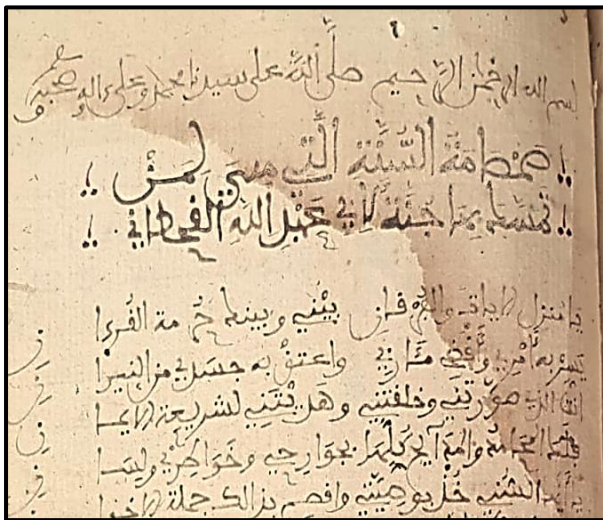 بسم الله الرحمن الرحيم صلى الله على سيدنا محمد وعلى ءاله وصحبه
السنة التي لمن
تمسك بها جنة لأبي عبد الله القحطاني
يا منزل الايات والفرقان بيني وبينك حرمة القرءا ن
يسر به أمري وأقض مئاربي واعتق به جسدي من النيرا ن
أنت الذي صورتني وخلقتني وهديتني لشريعة الايما ن
فلك المحامد والمدايح كلها بجوارحي وخواطري ولسا ن
يأيها السني خذ بوصيتي واخصص بذالك جملة الاخوا ن